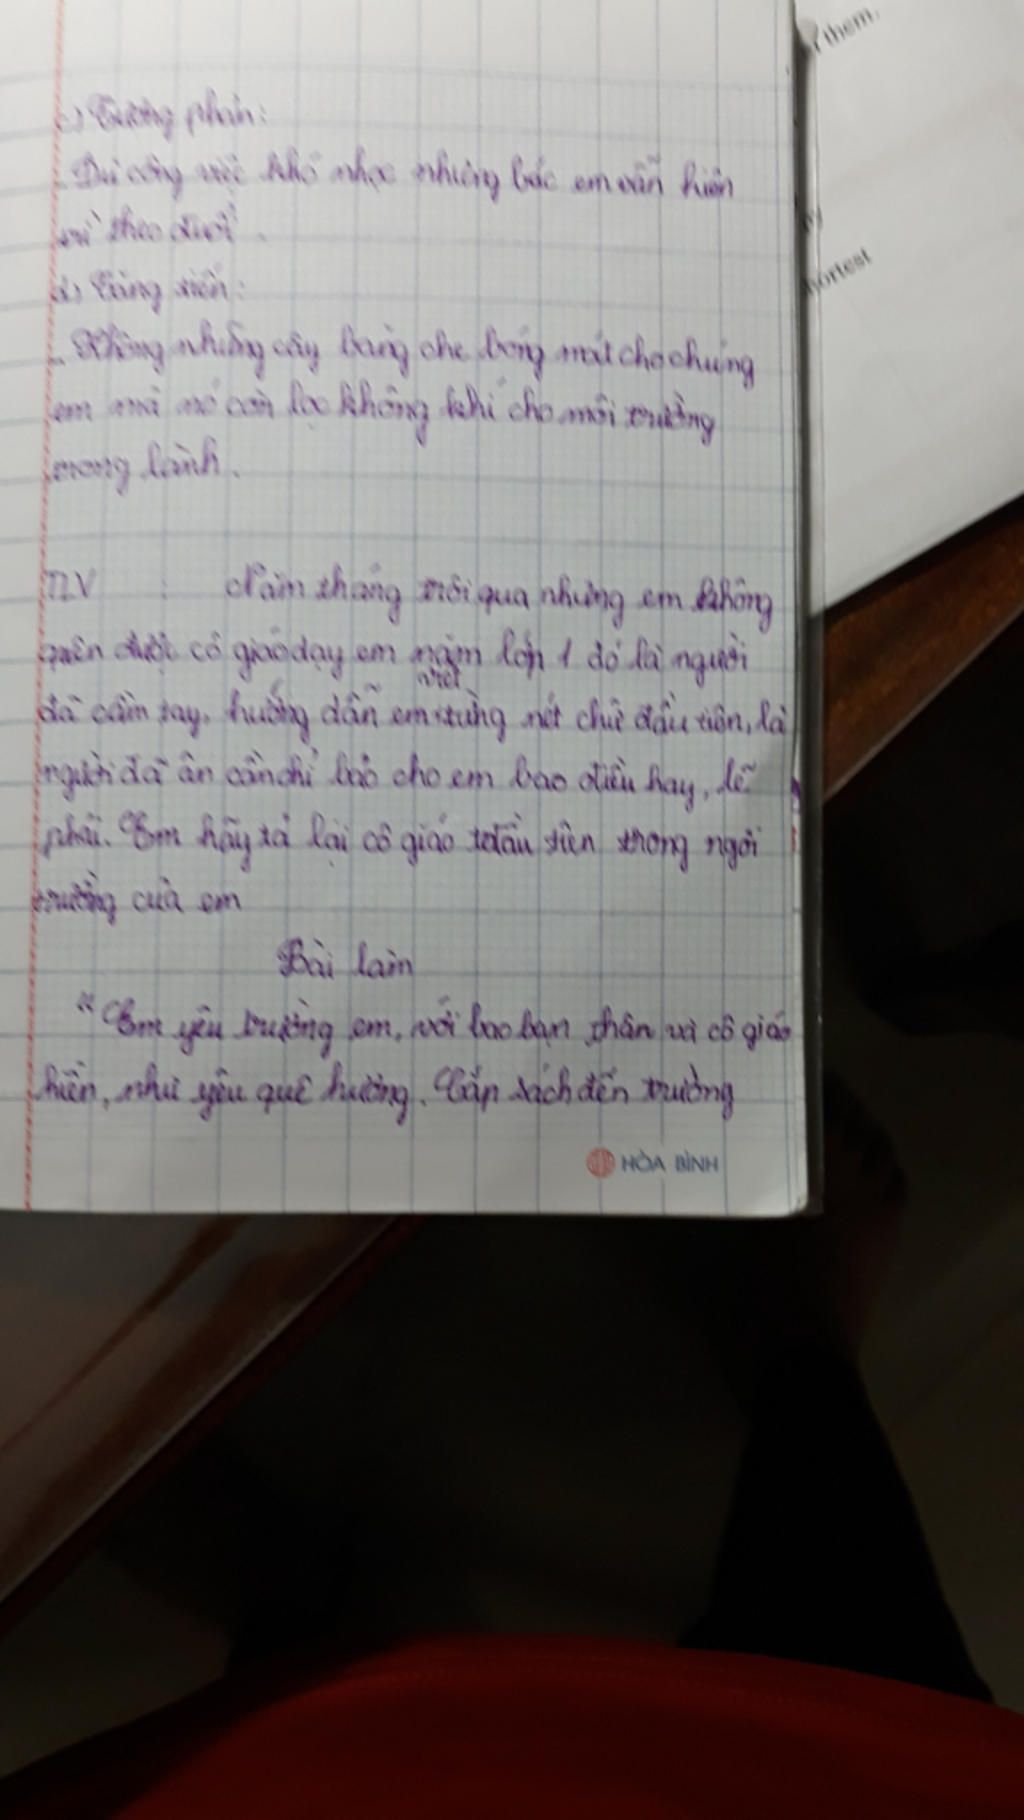 c) Tương phản:
- Dù công việc khó nhọc nhưng bác em vẫn kiên
trì theo đuổi.
d) Tăng tiến:
- Không những cây bàng che bóng mát cho chúng
em mà nó còn lọc không khí cho môi trường
trong lành.
TLV : Năm tháng trôi qua nhưng em không
quên được cô giáo dạy em năm lớp 1 đó là người
viết
đã cầm tay, hướng dẫn em từng nét chữ đầu tiên, là
người đã ân cần chỉ bảo cho em bao điều hay, lẽ
phải. Em hãy tả lại cô giáo đầu tiên trong ngôi
trường của em
Bài làm
"Em yêu trường em, với bao bạn thân và cô giáo
hiền, như yêu quê hương. Cắp sách đến trường
HÒA BÌNH
them.
by
hortest